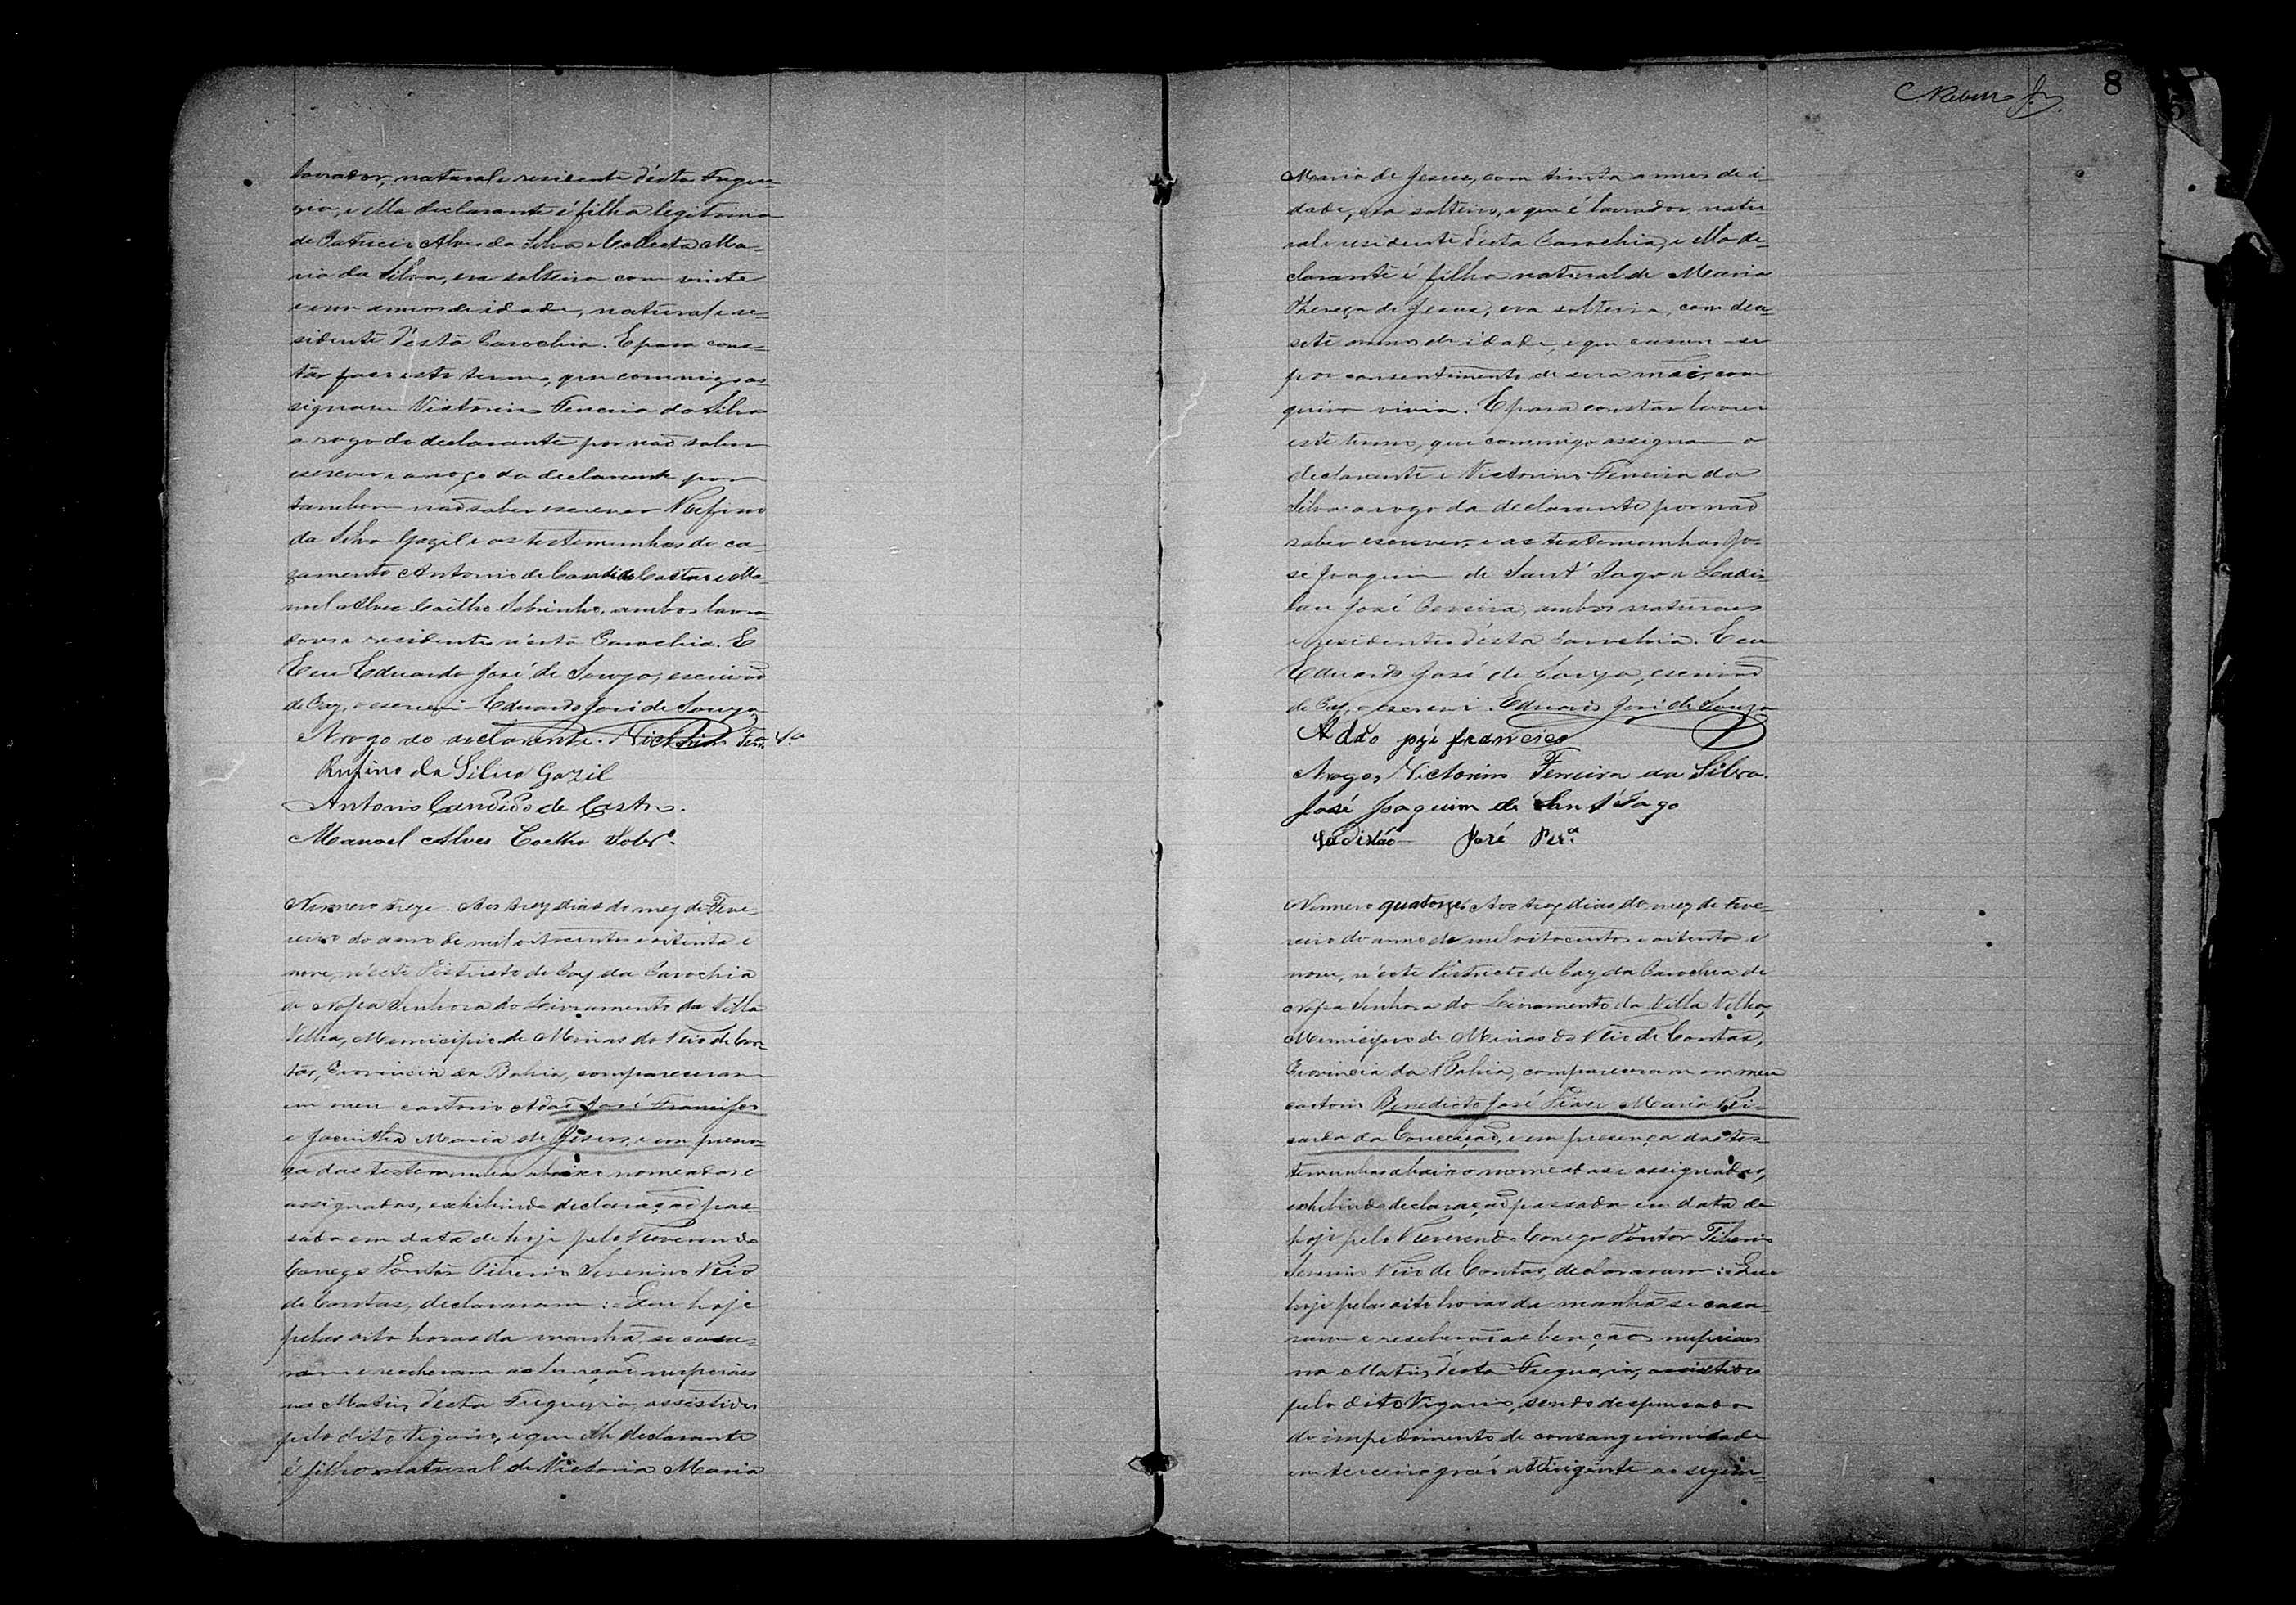 lavrador, natural e residente d'esta Fregue-
zia, e ella declarante é filha legitima
de Patricio Alves da Silva e Collecta Ma-
ria da Silva, era solteira com vinte
e um annos de idade, natural e re-
sidente d'esta Parochia. E para cons-
tar faço este termo, que commigo as-
signam Victorino Ferreira da Silva
a rogo do declarante por não saber
escrever e a rogo da declarante por
tambem não saber escrever Rufino
da Silva Gazil e as testemunhas do ca-
zamento Antonio de Candido Castro e Ma-
noel Alves Coêlho Sobrinho, ambos lavra-
dores e residentes n'esta Parochia. E
Eu Eduardo José de Souza, escrivão
de Paz, o escrevi - Eduardo José de Souza
A rogo do declarante. Victorino Ferr.ª S.ª
Rufino da Silva Gazil
Antonio Candido de Castro.
Manoel Alves Coelho Sobr.º
Numero treze. Aos trez dias do mez de Feve-
reiro do anno de mil oitocentos e oitenta e
nove, n'este Districto de Paz da Parochia
de Nossa Senhora do Livramento da Villa
Velha, Municipio de Minas do Rio de Con-
tas, Provincia da Bahia, compareceram
em meu cartorio Adão José Francisco
e Jacintha Maria de Jesus, e em presen-
ça das testemunhas abaixo nomeadas e
assignadas, exhibindo declaração pas-
sada em data de hoje pelo Reverendo
Conego Doutor Tiberio Severino Rio
de Contas, declararam: Que hoje
pelas oito horas da manhã se casa-
ram e receberam as bençãos nupciaes
na Matriz d'esta Freguezia, assistidos
pelo dito Vigario, e que elle declarante
é filho natural de Victoria Maria
Rabello Jr. 8
Maria de Jesus, com trinta annos de i-
dade, era solteiro, e que é lavrador, natu-
ral e residente d'esta Parochia, e ella de-
clarante é filha natural de Maria
Thereza de Jesus, era solteira, com deze-
sete annos de idade, e que casou-se
por consentimento de sua mãi, com
quem vivia. E para constar lavrei
este termo, que commigo assignam o
declarante e Victorino Ferreira da
Silva a rogo da declarante por não
saber escrever, e as testemunhas Jo-
sé Joaquim de Sant'Iago e Ladis-
lau José Pereira, ambos naturaes
e residentes d'esta Parochia. E eu
Eduardo José de Souza, escrivão
de Paz, o escrevi. Eduardo José de Souza
Adão José francisco
Arogo, Victorino Ferreira da Silva.
José Joaquim de Sant'Iago
Ladisláo José Per.ª
Numero quatorze. Aos trez dias do mez de Feve-
reiro do anno de mil oitocentos e oitenta e
nove, n'este Districto de Paz da Parochia de
Nossa Senhora do Livramento da Villa Velha,
Municipio de Minas do Rio de Contas,
Provincia da Bahia, compareceram em meu
cartorio Benedicto José Dias e Maria Ri-
carda da Conceição, e em presença das tes-
temunhas abaixo nomeadas e assignadas,
exhibindo declaração passada em data de
hoje pelo Reverendo Conego Doutor Tiberio
Severino Rio de Contas, declararam: Que
hoje pelas oito horas da manhã se casa-
ram e receberão as bençãos nupciaes
na Matriz d'esta Freguezia, assistidos
pelo dito Vigario, sendo despensados
do impedimento de consanguinidade
em terceiro gráo attingente ao segun-